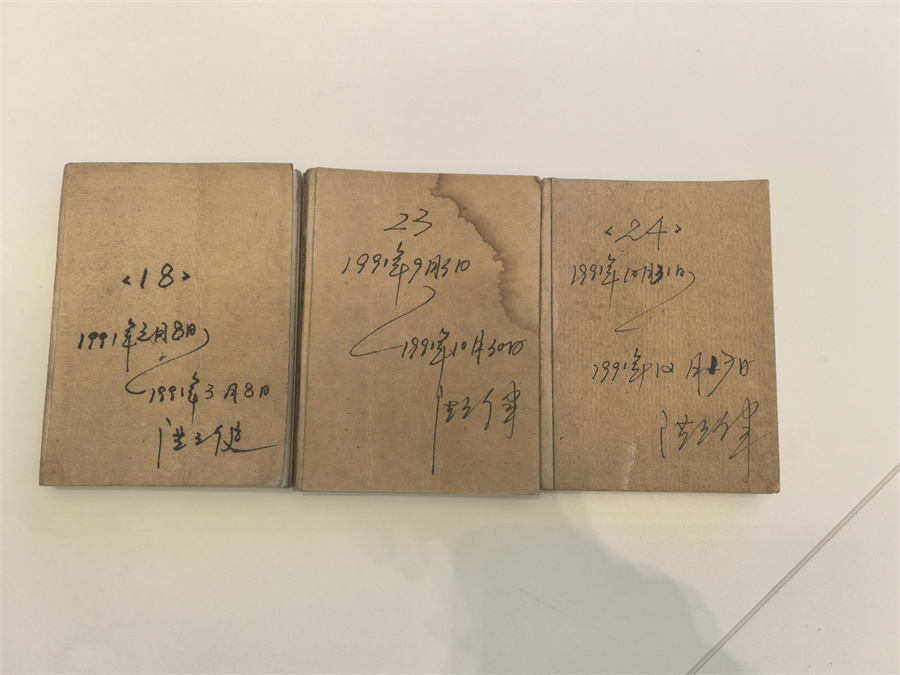 <18>
1991年2月8日
1991年3月8日
洪立健
23
1991年9月3日
1991年10月30日
<24>
1991年10月31日
1991年12月